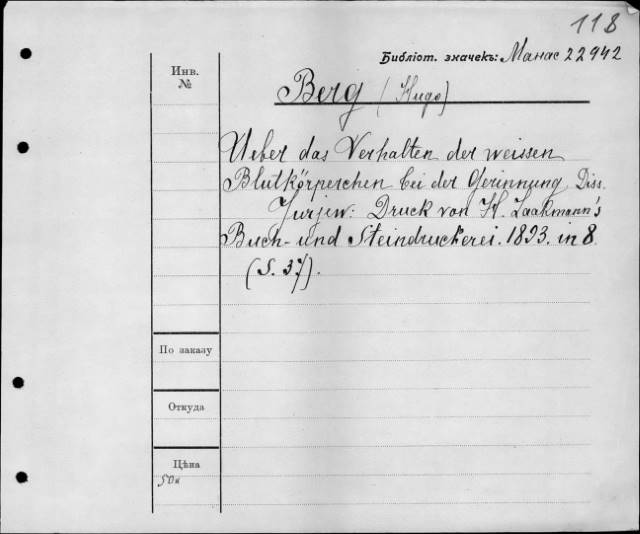 118
Библіот. значекъ: Манас 22942
Инв.
№
Berg (Hugo)
Ueber das Verhalten der weissen
Blutkörperchen bei der Gerinnung. Diss.
Jurjew: Druck von H. Laakmann's
Buch- und Steindruckerei. 1893. in 8.
(S. 37).
По заказу
Откуда
Цѣна
50к